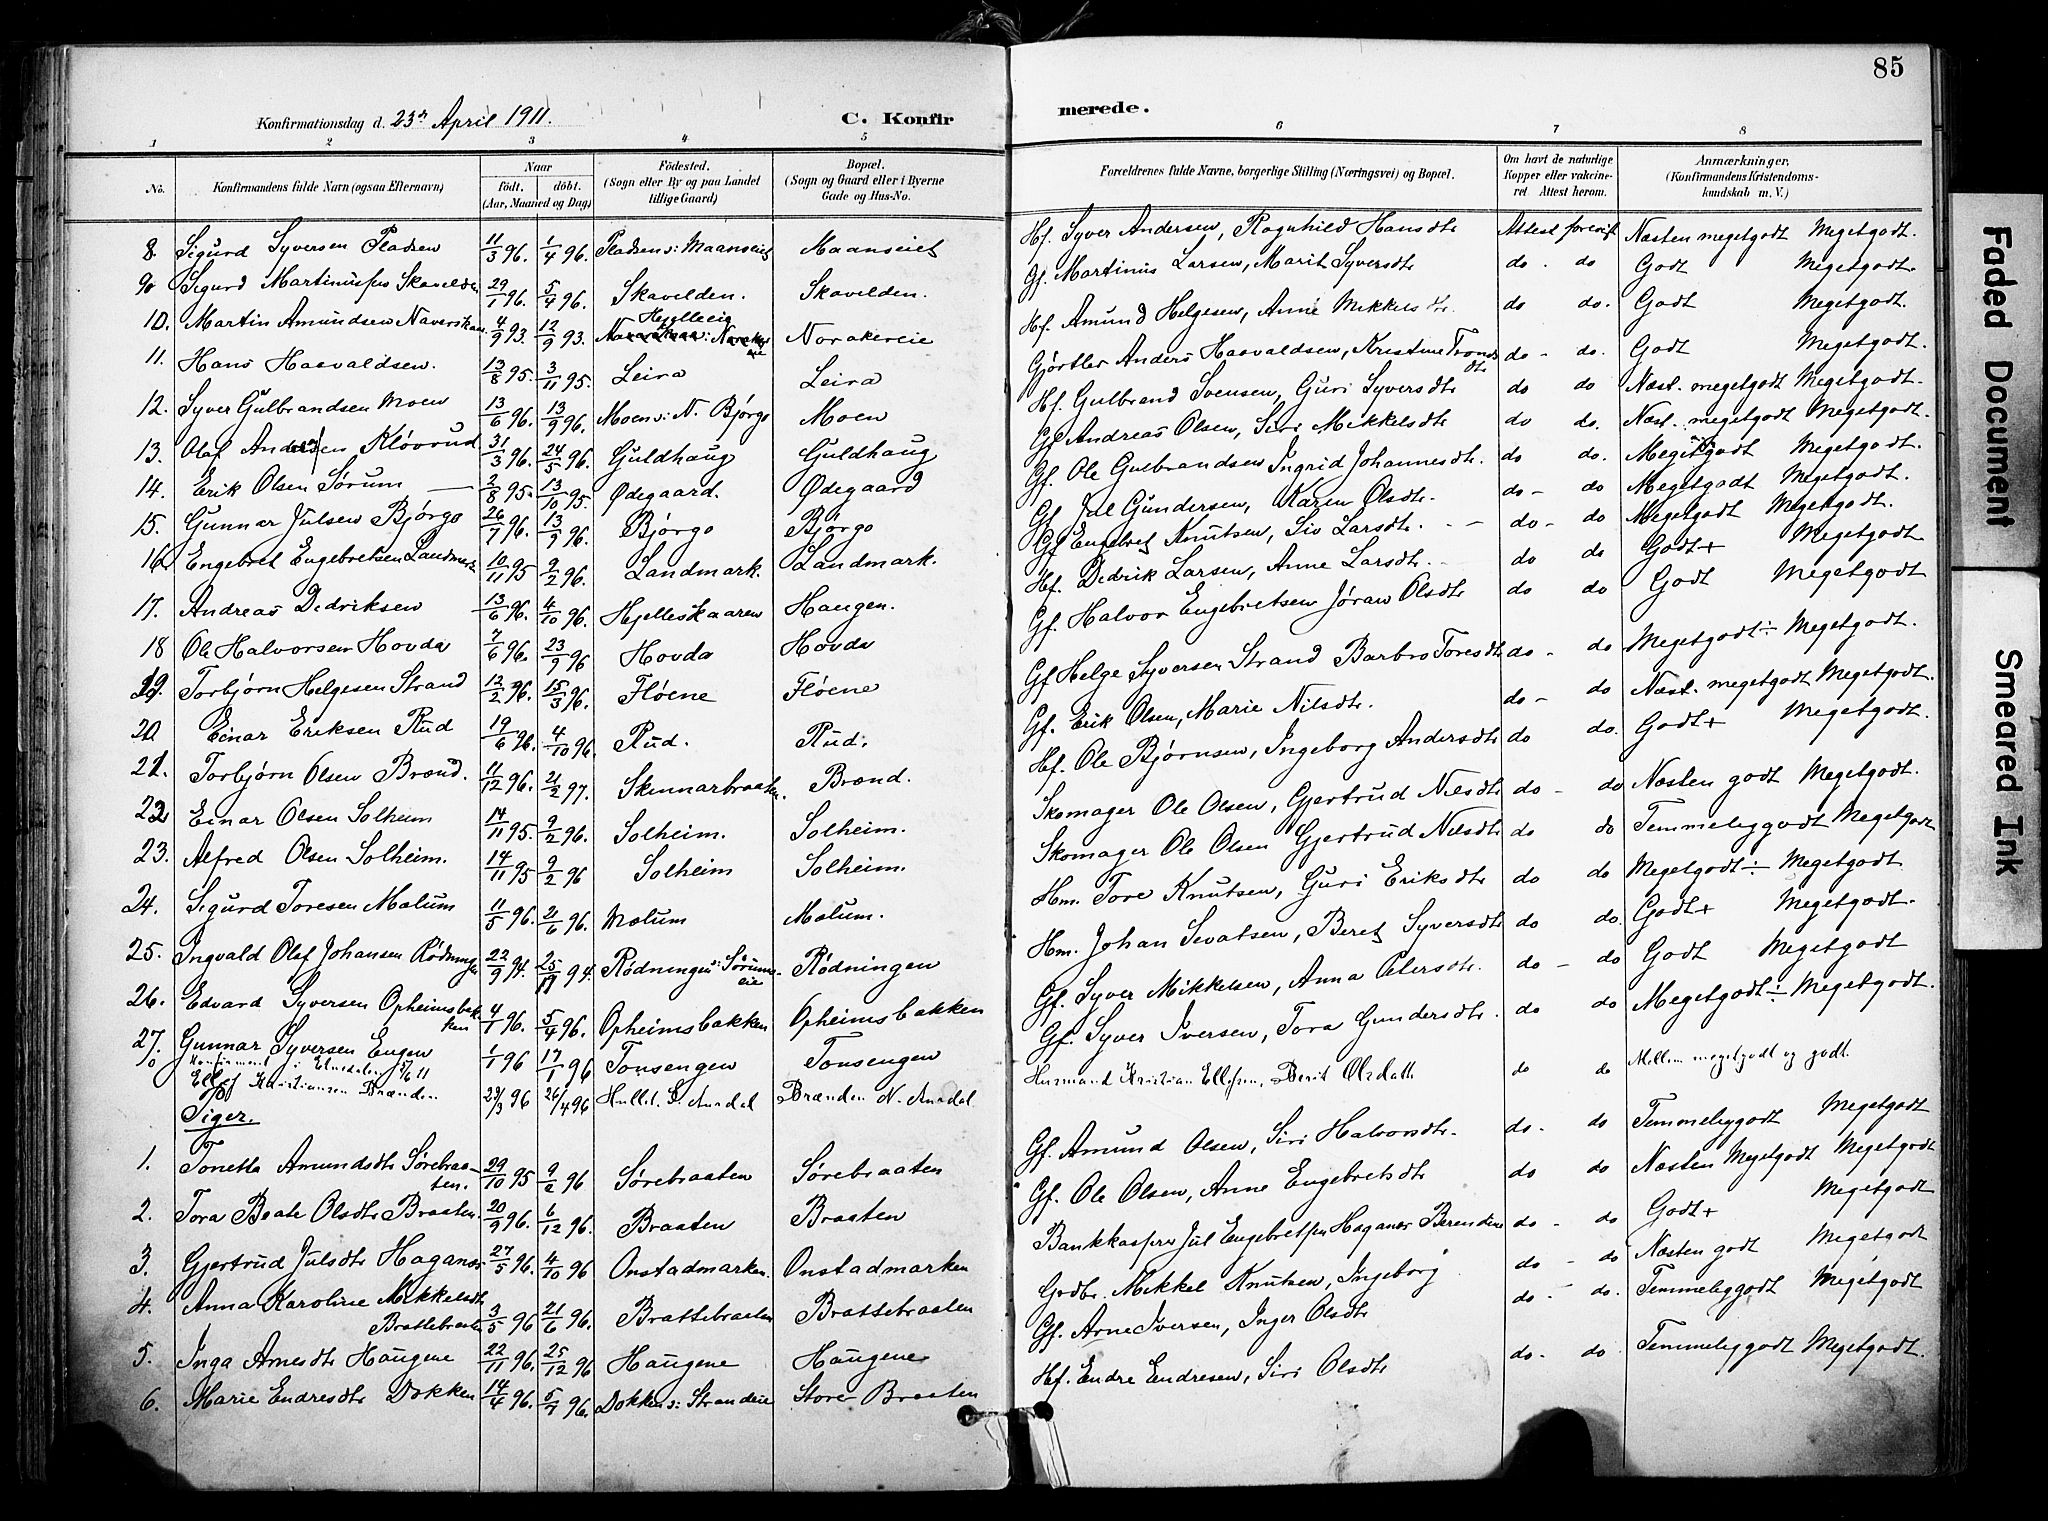 85
Konfirmationsdag d. 23de April 1911.
C. Konfirmerede.
1 2 3 4 5 6 7 8
No. Konfirmandens fulde Navn (ogsaa Efternavn) Naar födt. döbt. (Aar, Maaned og Dag) Födested. (Sogn eller By og paa Landet tillige Gaard) Bopæl. (Sogn og Gaard eller i Byerne Gade og Hus-No. Forældrenes fulde Navne, borgerlige Stilling (Næringsvei) og Bopæl. Om havt de naturlige Kopper eller vaccineret Attest herom. Anmærkninger. (Konfirmandens Kristendomskundskab m. V.)
8. Sigurd Syversen Pladsen 11/3 96. 1/4 96. Pladsen u: Maanseiet Maanseiet Hf. Syver Andersen, Ragnhild Hansdtr Attest forevist Næsten megetgodt Megetgodt.
9. Sigurd Martinussen Skavelden 29/1 96. 5/4 96. Skavelden. Skavelden. Gf. Martinus Larsen, Marit Syversdtr do. do Godt Megetgodt.
10. Martin Amundsen 4/9 93. 12/9 93. Norakereie Hf. Amund Helgesen, Anne Mikkelsdtr do do. Godt Megetgodt.
11. Hans Haavaldsen. 13/8 95. 3/11 95. Leira Leira Gjørtler Anders Haavaldsen, Kristine Trondsdtr do - do. Godt Megetgodt.
12. Syver Gulbrandsen Moen 13/6 96. 13/9 96. Moen u: N. Bjørgo Moen Hf. Gulbrand Svensen, Guri Syversdtr do do Næst. megetgodt Megetgodt.
13. Olaf Andersen Kløvrud 31/3 96. 24/5 96. Guldhaug Guldhaug Gf. Andreas Olsen, Siri Mikkelsdtr do do. Næst. megetgodt Megetgodt.
14. Erik Olsen Sørum 2/8 95. 13/10 95. Ødegaard. Ødegaard Gf. Ole Gulbrandsen Ingrid Johannesdtr. do do. Megetgodt Megetgodt.
15. Gunnar Julsen Bjørgo 26/7 96. 13/9 96. Bjørgo Bjørgo Gf. Jul Gundersen, Karen Olsdtr. do - do Megetgodt Megetgodt.
16. Engebret Engebretsen Landmark 10/11 95 9/2 96. Landmark. Landmark. Gf. Engebret Knutsen, Siv Larsdtr. - - do - do Megetgodt Megetgodt.
17. Andreas Dedriksen 13/6 96. 4/10 96. Hjelleskaaren Haugen. Hf. Dedrik Larsen, Anne Larsdtr. do do Godt+ Megetgodt
18 Ole Halvorsen Hovda 7/6 96. 23/9 96 Hovda Hovda Gf. Halvor Engebretsen Jøran Olsdtr do do Godt Megetgodt
19. Torbjørn Helgesen Strand 12/2 96. 15/3 96. Fløene Fløene Gf. Helge Syversen Strand Barbro Toresdtr do - do Megetgodt÷ Megetgodt.
20 Einar Eriksen Rud 19/6 96. 4/10 96. Rud. Rud. Gf. Erik Olsen, Marie Nilsdtr. do - do Næst. megetgodt Megetgodt.
21. Torbjørn Olsen Brænd. 11/12 96. 21/2 97. Skinnarbraaten. Brænd. Hf. Ole Bjørnsen, Ingeborg Andersdtr do do. Godt+ Megetgodt.
22 Einar Olsen Solheim 14/11 95. 9/2 96. Solheim. Solheim. Skomager Ole Olsen, Gjertrud Nilsdtr do - do Næsten godt Megetgodt.
23. Alfred Olsen Solheim. 14/11 95 9/2 96 Solheim Solheim. Skomager Ole Olsen Gjertrud Nilsdtr do do Temmeliggodt Megetgodt
24. Sigurd Toresen Molum 11/5 96. 21/6 96. Molum Molum. Hm. Tore Knutsen, Guri Eriksdtr do do Megetgodt÷ Megetgodt.
25. Ingvald Olaf Johansen Rødningen 22/9 94. 25/11 94. Rødningen u: Sørumseie Rødningen Hm. Johan Sevatsen, Beret Syversdtr do do. Godt+ Megetgodt.
26. Edvard Syversen Opheimsbakken 4/1 96. 5/4 96. Opheimsbakken Opheimsbakken Gf. Syver Mikkelsen, Anna Petersdtr. do - do Godt Megetgodt
27. Gunnar Syversen Eugen 1/1 96 17/1 96 Tonsengen Tonsengen Gf. Syver Iversen, Tora Gundersdtr. do do Megetgodt÷ Megetgodt.
Konfirmert i Etnedalen 5/6 11
Ellef Kristiansen Brænden 29/3 96 26/4 96 Hullet S. Aurdal Brænden N. Aurdal Husmand Kristian Ellefsen, Berit Olsdatter do do Mellem megetgodt og godt.
Piger.
1. Tonetta Amundsdtr Sørebraaten. 29/10 95 9/2 96 Sørebraaten Sørebraaten Gf. Amund Olsen, Siri Halvorsdtr. do. do Temmeliggodt Megetgodt
2. Tora Beate Olsdtr Braaten. 20/9 96. 6/12 96. Braaten Braaten Gf. Ole Olsen, Anne Engebretsdtr do do Næsten Megetgodt Megetgodt
3. Gjertrud Julsdtr Haganæs 27/5 96. 4/10 96 Onstadmarken. Onstadmarken Bankkasserer Jul Engebretsen Haganæs Berendine do - do Godt+ Megetgodt
4. Anna Karoline Mikkelsdtr Brattebraaten 3/5 96 21/6 96. Brattebraaten Brattebraaten Godtr. Mikkel Knutsen, Ingeborg do - do Næsten godt Megetgodt
5. Inga Arnesdtr Haugene 22/11 96. 25/12 96 Haugene Haugene Gf. Arne Iversen, Inger Olsdtr do - do. Temmeliggodt Megetgodt
6. Marie Endresdtr Dokken 14/4 96. 5/7 96. Dokken u: Strandeie Store Braaten Hf. Endre Endresen, Siri Olsdtr do - do Temmeliggodt Megetgodt.
Faded Document
Smeared Ink